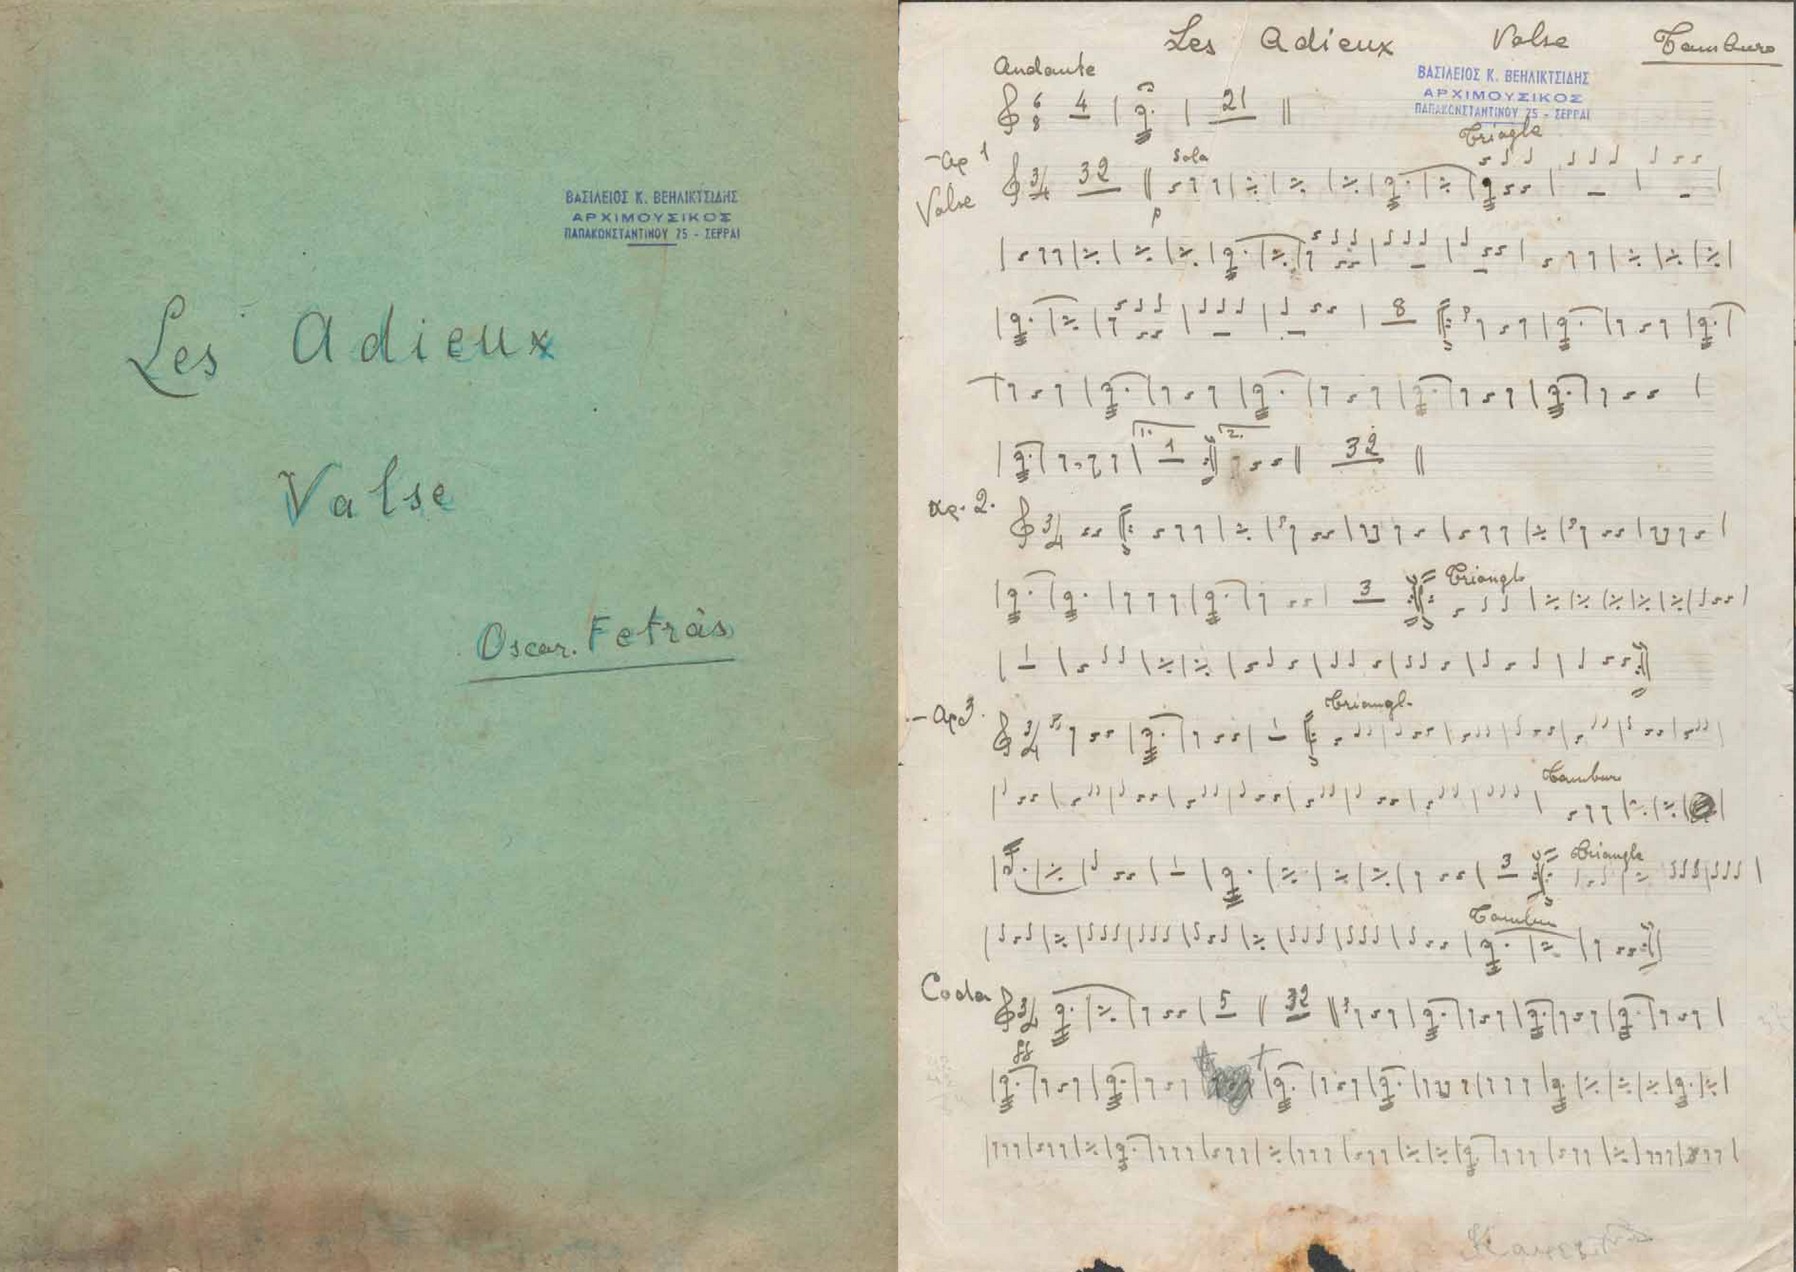 ΒΑΣΙΛΕΙΟΣ Κ. ΒΕΗΛΙΚΤΣΙΔΗΣ
ΑΡΧΙΜΟΥΣΙΚΟΣ
ΠΑΠΑΚΩΝΣΤΑΝΤΙΝΟΥ 25 - ΣΕΡΡΑΙ
Les Adieux
Valse
Oscar. Fetràs
Les Adieux Valse Tamburo
Andante
ΒΑΣΙΛΕΙΟΣ Κ. ΒΕΗΛΙΚΤΣΙΔΗΣ
ΑΡΧΙΜΟΥΣΙΚΟΣ
ΠΑΠΑΚΩΝΣΤΑΝΤΙΝΟΥ 25 - ΣΕΡΡΑΙ
6 8 4 21
Αρ 1 Solo Triagle
Valse 3/4 32
p
8
1. 1 2. 32
Αρ. 2. 3/4
3 Triangl
Αρ 3. 3/4 Triangl.
Tambur
3 Triangle
Tambur
Coda 3/4 5 32
ff